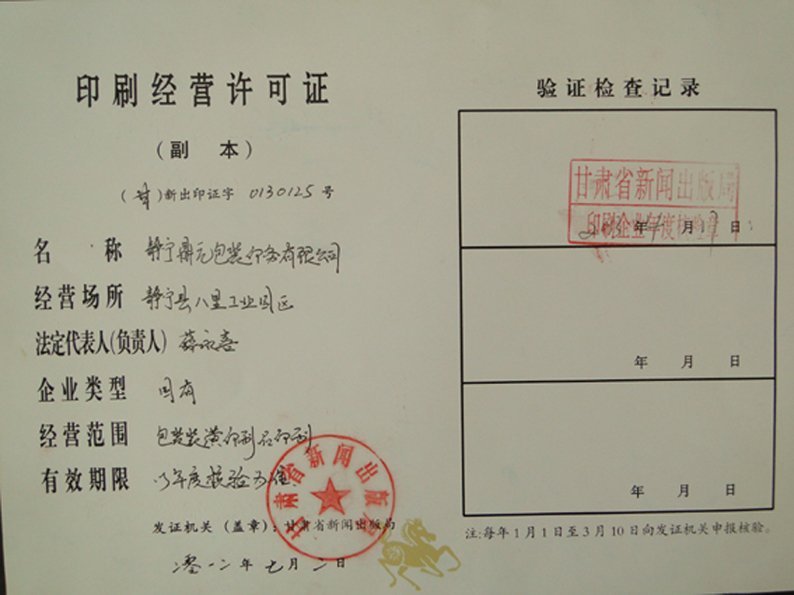 印刷经营许可证
（副 本）
（甘）新出印证字 0130125 号
名 称 静宁鼎元包装印务有限公司
经营场所 静宁县八里工业园区
法定代表人(负责人)
企业类型 国有
经营范围 包装装潢印刷品印刷
有效期限 以年度核验为准
发证机关（盖章）：甘肃省新闻出版局
二零一二年七月二日
甘肃省新闻出版局
验证检查记录
甘肃省新闻出版局
印刷企业年度核验章
年 月 日
年 月 日
年 月 日
注:每年1月1日至3月10日向发证机关申报核验。